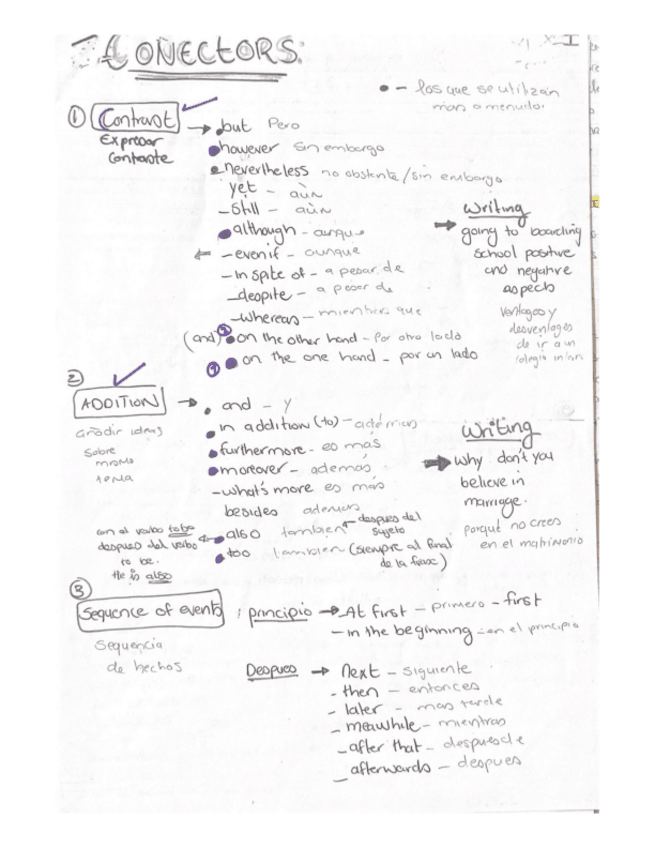 CONECTORS:
I
- los que se utilizan
mas a menudo.
① Contrast
Expresar
Contraste
→ but Pero
however sin embargo
nevertheless no obstante / sin embargo
yet - aún
- Still - aún
although - aunque
← - even if - aunque
- in spite of - a pesar de
- despite - a pesar de
- whereas - mientras que
(and) ② on the other hand - Por otro lado
① on the one hand - por un lado
→ Writing
going to boarding
school positive
and negative
aspects
Ventajas y
desventajas
de ir a un
colegio
②
ADDITION
añadir ideas
sobre
mismo
tema
→ and - y
in addition (to) - además
furthermore - es más
moreover - además
- what's more es más
besides además
also tambien ← despues del
sujeto
too tambien (siempre al final
de la frase)
con el verbo to be
despues del verbo ←
to be.
He is also
Writing
→ Why don't you
believe in
marriage.
porqué no crees
en el matrimonio
③
Sequence of events : principio → At first - primero - first
- in the beginning - en el principio
Sequencia
de hechos
Despues → Next - siguiente
- then - entonces
- later - mas tarde
- meawhile - mientras
- after that - despues de
- afterwards - despues